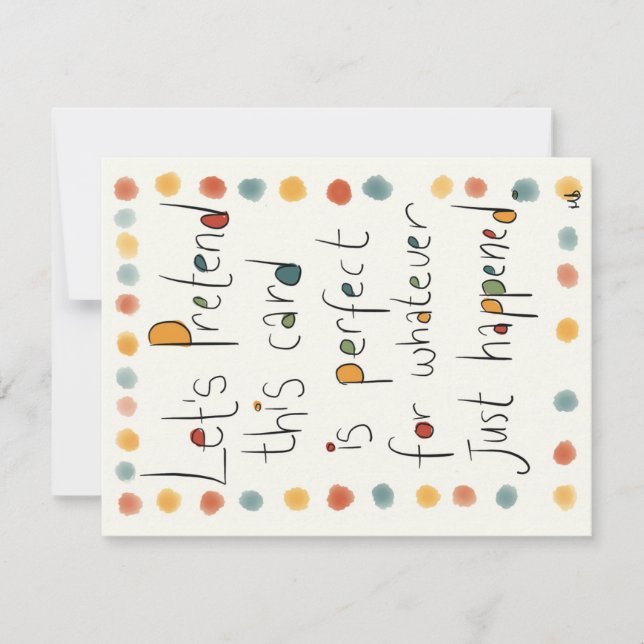 Let's Pretend
this card
is perfect
for whatever
Just happened